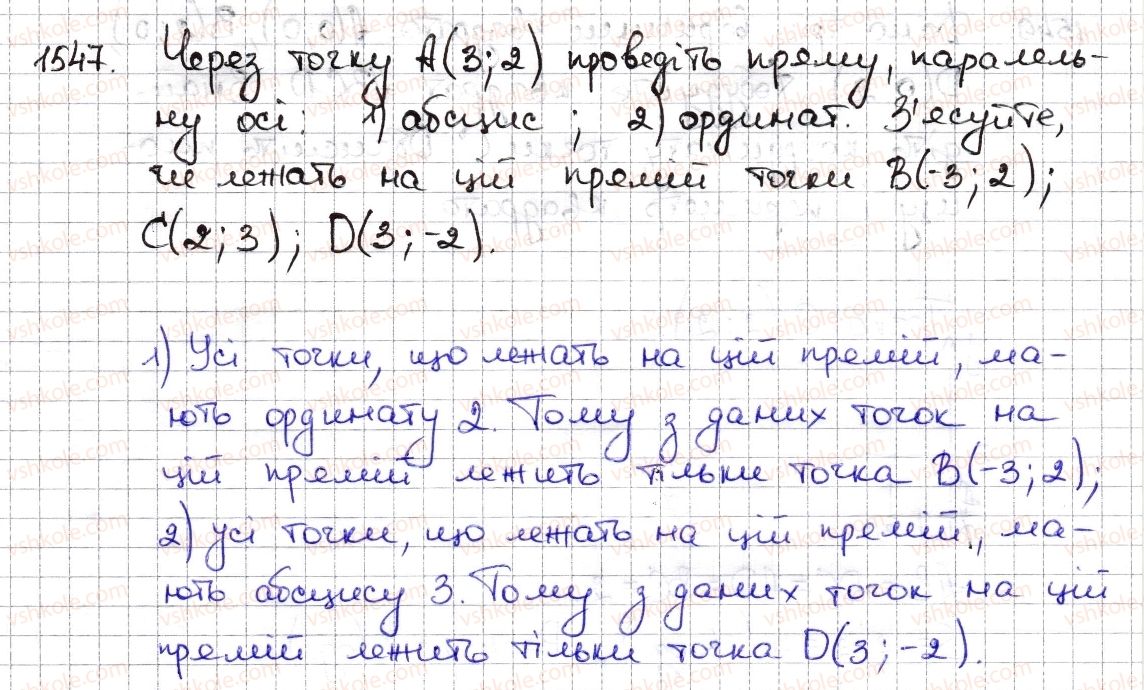 1547. Через точку A(3; 2) проведіть пряму, паралель-
ну осі: 1) абсцис ; 2) ординат. З'ясуйте,
чи лежать на цій прямій точки B(-3; 2);
C(2; 3); D(3; -2).
1) Усі точки, що лежать на цій прямій, ма-
ють ординату 2. Тому з даних точок на
цій прямій лежить тільки точка B(-3; 2);
2) Усі точки, що лежать на цій прямій, ма-
ють абсцису 3. Тому з даних точок на цій
прямій лежить тільки точка D(3; -2).